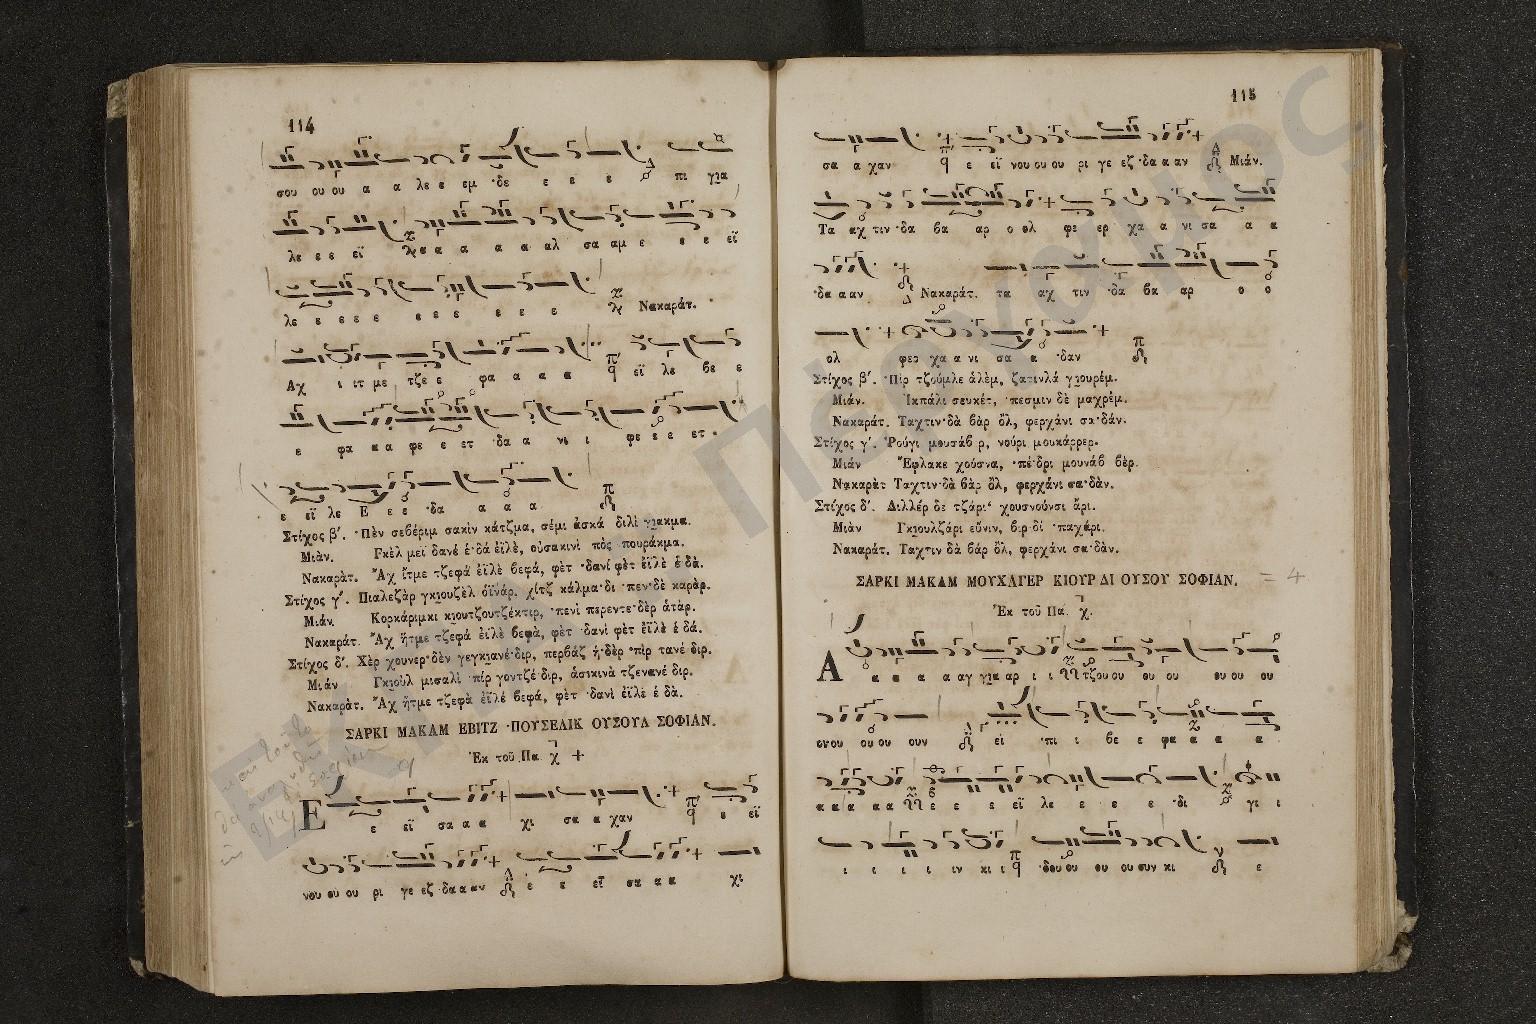 114
σου ου ου α α λε ε εμ ·δε ε ε ε ε πι για
λε ε ε εϊ α α α α αλ σα αμ ε ε ε εϊ
λε ε ε ε ε ε ε ε ε ε ε Νακαράτ.
Αχ ι ιτ με τζε ε φα α α α εϊ λε βε ε
ε φα α α φε ε ετ ·δα α νι ι φε ε ε ετ
ε εϊ λε Ε ε ε ·δα α α α
Στίχος β΄. ·Πὲν σεβέριμ σακὶν κάτζμα, σέμι ἀσκά διλὶ γιακμα.
Μιὰν. Γκὲλ μεϊ δανέ ἑ·δά ἐϊλὲ, οὐσακινὶ πὸς πουράκμα.
Νακαρὰτ. Ἂχ ἴτμε τζεφά ἐϊλὲ βεφά, φὲτ ·δανί φὲτ ἐϊλὲ ἑ·δὰ.
Στίχος γ΄. Πιαλεζὰρ γκιουζὲλ οἴνάρ, χίτζ κάλμα·δι ·πεν·δὲ καρὰρ.
Μιάν. Κορκάριμκι κιουτζουτζέκτιρ, ·πενὶ περεντε·δὲρ ἀτὰρ.
Νακαράτ. Ἂχ ἤτμε τζεφά ἐϊλὲ βεφὰ, φὲτ ·δανὶ φὲτ ἐϊλὲ ἑ δά.
Στίχος δ΄. Χὲρ χουνερ·δὲν γεγκιανέ·διρ, περβάζ ἠ·δὲρ ·πὶρ τανέ διρ.
Μιάν Γκιοὺλ μισαλὶ ·πίρ γοντζέ·διρ, ἀσικινὰ τζενανέ διρ.
Νακαρὰτ. Ἂχ ἤτμε τζεφὰ ἐϊλέ βεφά, φὲτ ·δανὶ ἐϊλὲ ἑ δὰ.
ΣΑΡΚΙ ΜΑΚΑΜ ΕΒΙΤΖ ·ΠΟΥΣΕΛΙΚ ΟΥΣΟΥΛ ΣΟΦΙΑΝ.
Ἐκ τοῦ Πα
Ε ε εϊ σα α α χι σα α χαν ε εϊ
νου ου ου ρι γε εζ ·δα α αν ε ε εϊ σα α α χι
115
σα α χαν ε εϊ νου ου ου ρι γε εζ ·δα α αν Μιάν.
Τα αχ τιν ·δα βα αρ ο ολ φε ερ χα α νι σα α α
·δα α αν Νακαράτ. τα αχ τιν ·δα βα αρ ο ο
ολ φερ χα α νι σα α ·δαν
Στίχος β΄. ·Πὶρ τζούμλε ἀλὲμ, ζατινλά γιουρέμ.
Μιάν. Ἰκπάλι σευκέτ, ·πεσμιν δὲ μαχρέμ.
Νακαράτ. Ταχτιν·δὰ βὰρ ὂλ, φερχάνι σα·δάν.
Στίχος γ΄. Ῥούγι μουσάβ ρ, νούρι μουκάρρερ.
Μιάν Ἔφλακε χούσνα, ·πέ·δρι μουνάβ βὲρ.
Νακαράτ Ταχτιν·δὰ βὰρ ὂλ, φερχάνι σα·δὰν.
Στίχος δ΄. Διλλέρ δε τζάρι χουσνούνσι ἄρι.
Μιὰν Γκιουλζάρι εὔνιν, βιρ·δί ·παχάρι.
Νακαράτ. Ταχτιν δὰ βάρ ὂλ, φερχάνι σα·δὰν.
ΣΑΡΚΙ ΜΑΚΑΜ ΜΟΥΧΑΓΕΡ ΚΙΟΥΡ ΔΙ ΟΥΣΟΥ ΣΟΦΙΑΝ. = 4
Ἐκ τοῦ Πα
Α α α α α αγ για αρ ι ι τζου ου ου ου ου ου ου
ουου ου ου ουν εϊ ·πι ι βε ε φα α α α
α α α α α ε ε ε ε εϊ λε ε ε ε ε ·δι γι ι
ι ι ι ι ιν κι ι ·δου ου ου ου ουν κι ε